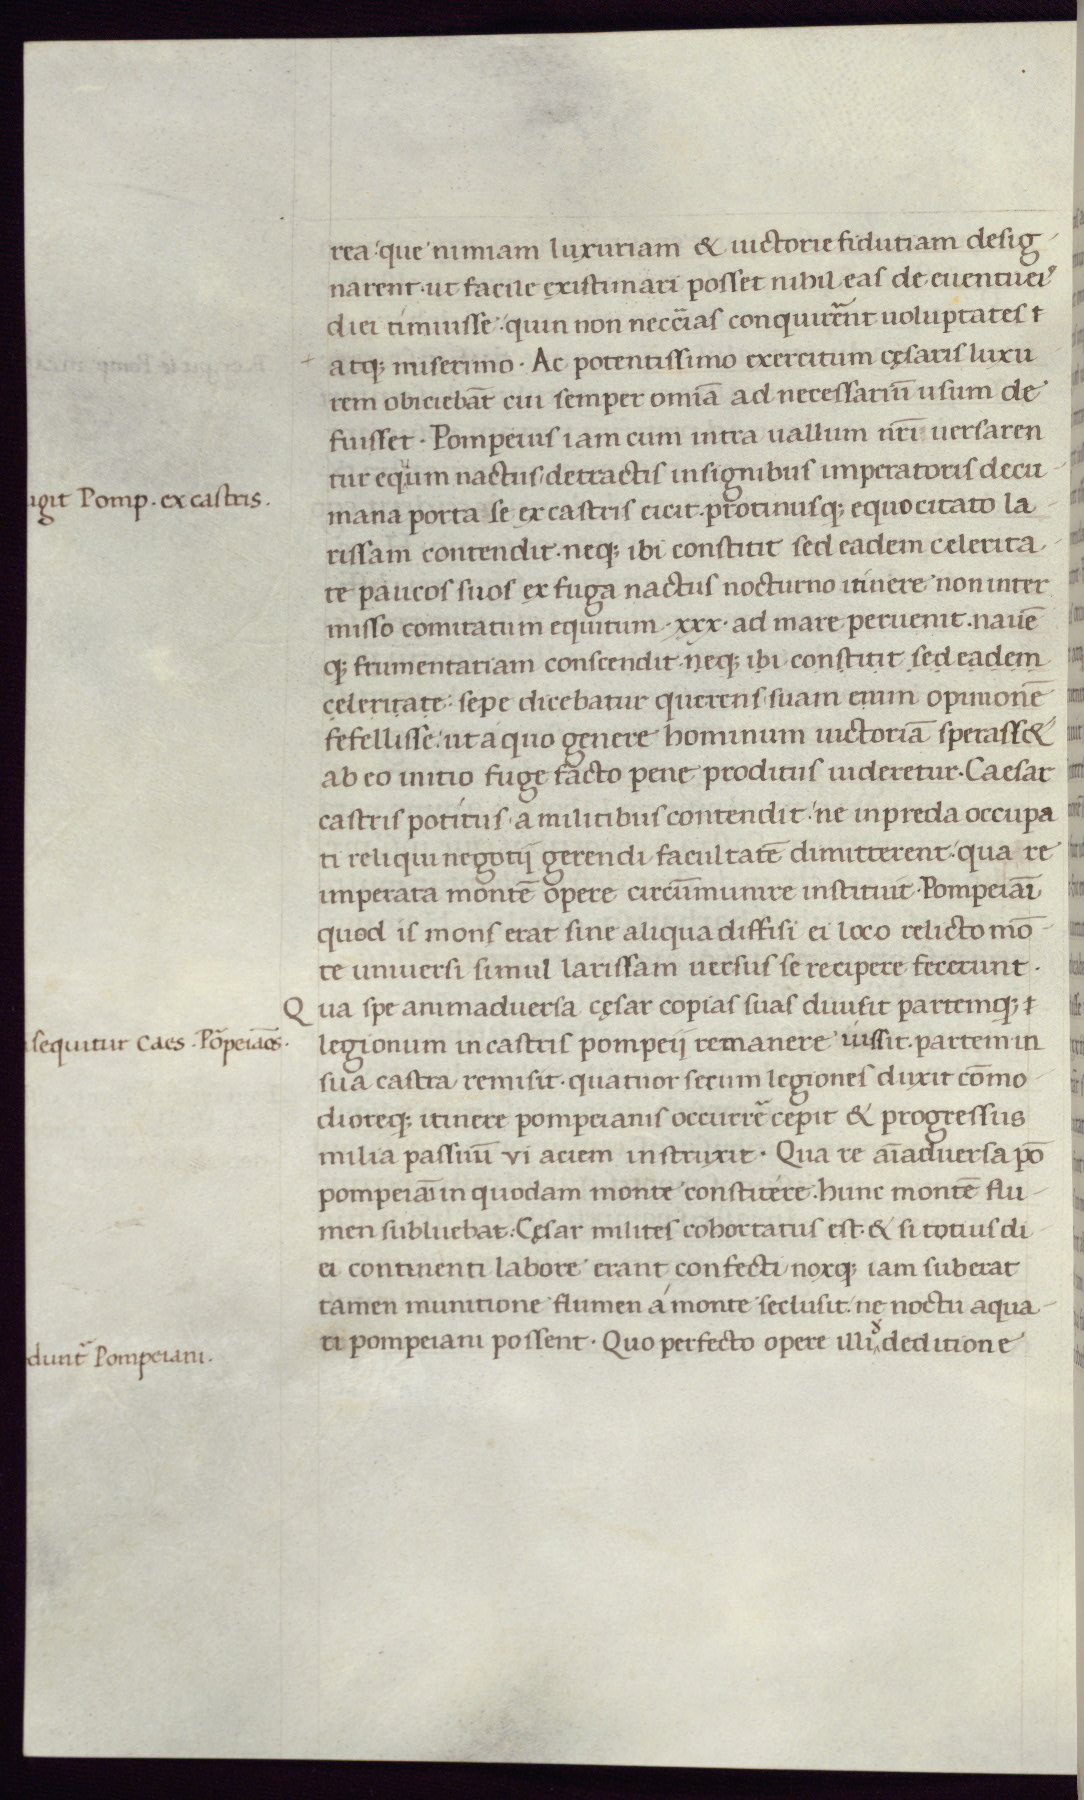 rea · que nimiam luxuriam & uictorie fidutiam desig-
narent · ut facile existimari posset nihil eas de euentu ei⁹
diei timuisse · quin non neccīas conquirer̃nt uoluptates ŧ
atq; miserimo · Ac potentissimo exercitum cęsaris luxu
rem obiciebāt cui semper omiā ad necessariū usum de
fuisset · Pompeius iam cum intra uallum nrī uersaren
tur equum nactus detractis insignibus imperatoris decu-
ugit Pomp · ex castris ·
mana porta se ex castris eicit · protinusq; equo citato la-
rissam contendit · neq; ibi constitit sed eadem celerita-
te paucos suos ex fuga nactus nocturno itinere non inter
misso comitatum equitum · xxx · ad mare peruenit · nauē
q; frumentariam conscendit · neq; ibi constitit sed eadem
celeritate · sepe dicebatur querens suam eium opinionē
fefellisse · ut a quo genere hominum uictoriā sperass&
ab eo initio fuge facto pene proditus uideretur · Caesar
castris potitus · a militibus contendit · ne in preda occupa
ti reliqui negotij gerendi facultatē dimitterent · qua re
imperata montē opere circūmunire instituit · Pompeiaī
quod is mons erat sine aliqua diffisi ei loco relicto mō-
te uniuersi simul larissam uersus se recipere fecerunt ·
Qua spe animaduersa cęsar copias suas diuisit partemq; ŧ
sequitur Caes · Pōpeiaōs ·
legionum in castris pompeij remanere iussit · partem in
sua castra remisit · quatuor secum legiones duxit cōmo-
dioreq; itinere pompeianis occurrẽ cepit & progressus
milia passuū vi aciem instruxit · Qua re aīaduersa pō
pompeiaī in quodam monte constitere · hunc montē flu-
men subluebat · Cęsar milites cohortatus est · & si totius di-
ei continenti labore erant confecti noxq; iam suberat
tamen munitione flumen á monte seclusit · ne noctu aqua-
ri pompeiani possent · Quo perfecto opere illi deditione
duntr̃ Pompeiani ·